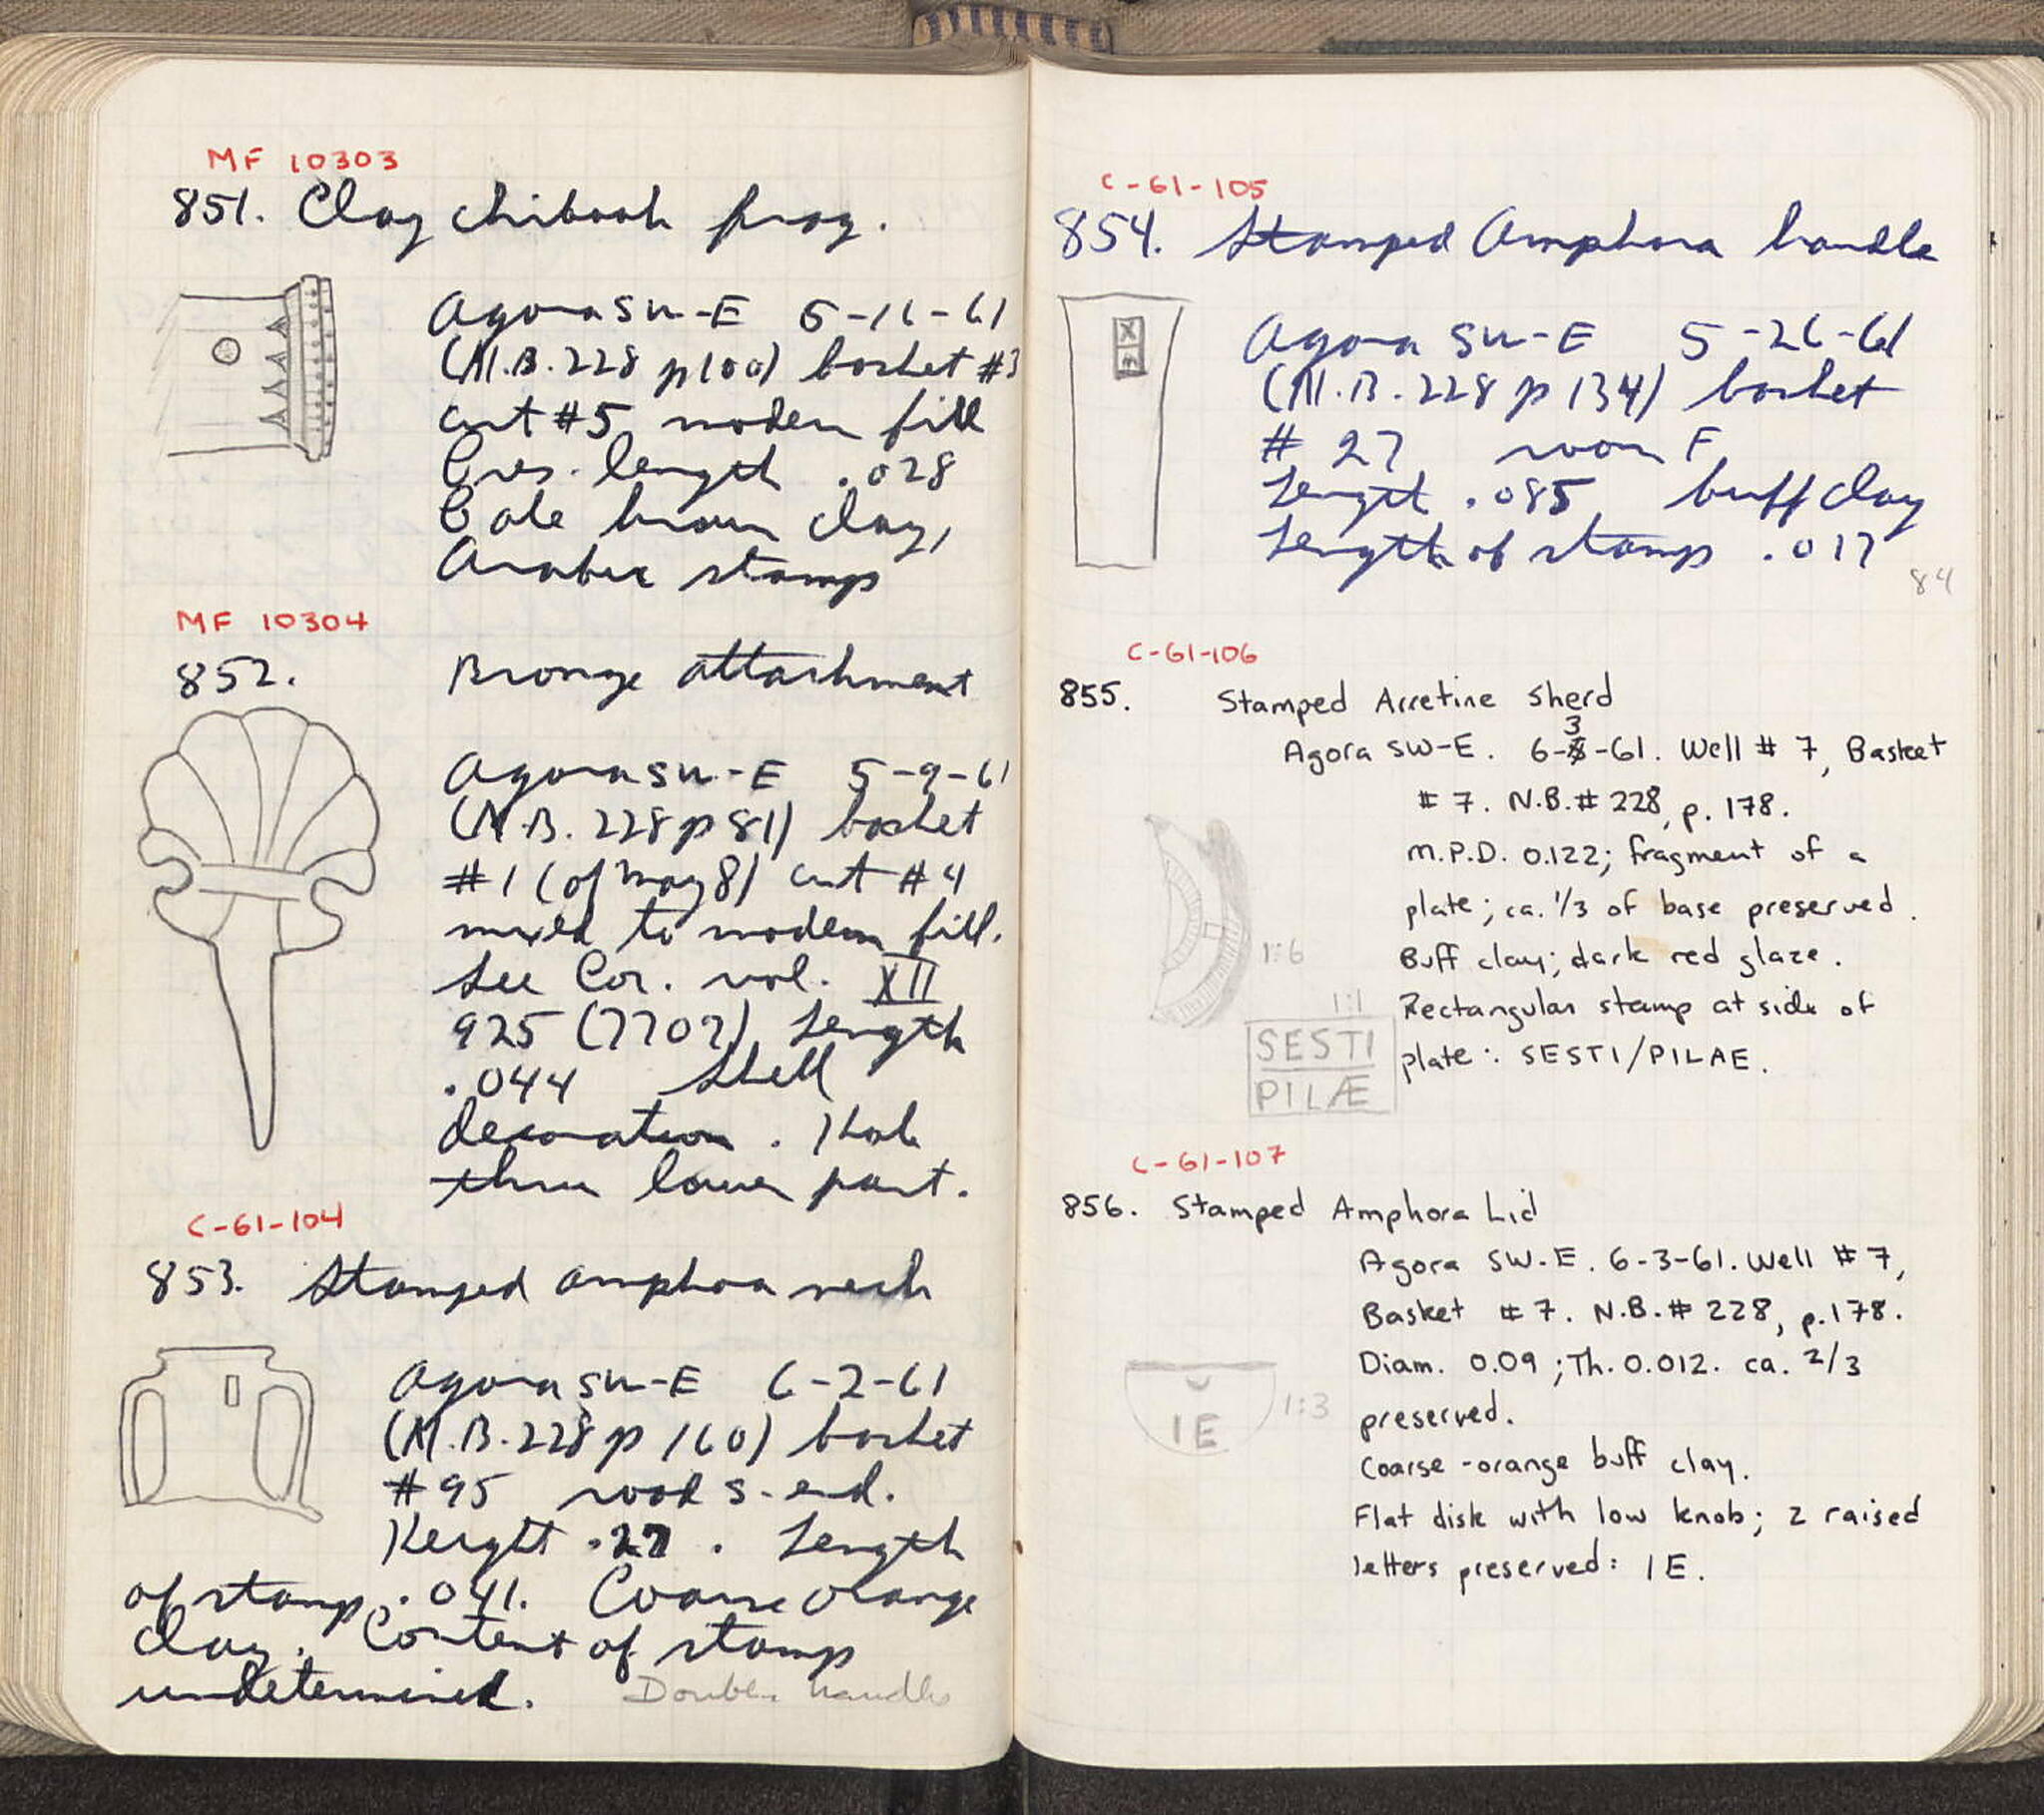 MF 10303
851. Clay chibouk frag.
Agora SW-E 5-11-61
(N.B. 228 p100) basket #3
cut #5 modern fill
Pres. length .028
Pale brown clay,
Arabic stamp
MF 10304
852. Bronze attachment
Agora SW-E 5-9-61
(N.B. 228 p 81) basket
#1 (of May 8) cut #4
mixed to modern fill.
See Cor. vol. XII
925 (7707) Length
.044 Shell
decoration. Hole
thru lower part.
C-61-104
853. Stamped amphora neck
Agora SW-E 6-2-61
(N.B. 228 p 160) basket
#95 road S. end.
Height .27. Length
of stamp .041. Coarse orange
clay. Content of stamp
undetermined. Double handles
C-61-105
854. Stamped Amphora handle
Agora SW-E 5-26-61
(N.B. 228 p 134) basket
# 27 room F
Length .085 buff clay
Length of stamp .017
84
C-61-106
855. Stamped Arretine Sherd
Agora SW-E. 6-3-61. Well # 7, Basket
# 7. N.B. # 228, p. 178.
M.P.D. 0.122; fragment of a
plate; ca. 1/3 of base preserved.
1:6
Buff clay; dark red glaze.
1:1
Rectangular stamp at side of
plate: SESTI/PILAE.
SESTI
PILÆ
C-61-107
856. Stamped Amphora Lid
Agora SW-E. 6-3-61. Well # 7,
Basket # 7. N.B. # 228, p. 178.
Diam. 0.09; Th. 0.012. ca. 2/3
preserved.
1:3
IE
Coarse-orange buff clay.
Flat disk with low knob; 2 raised
letters preserved: IE.